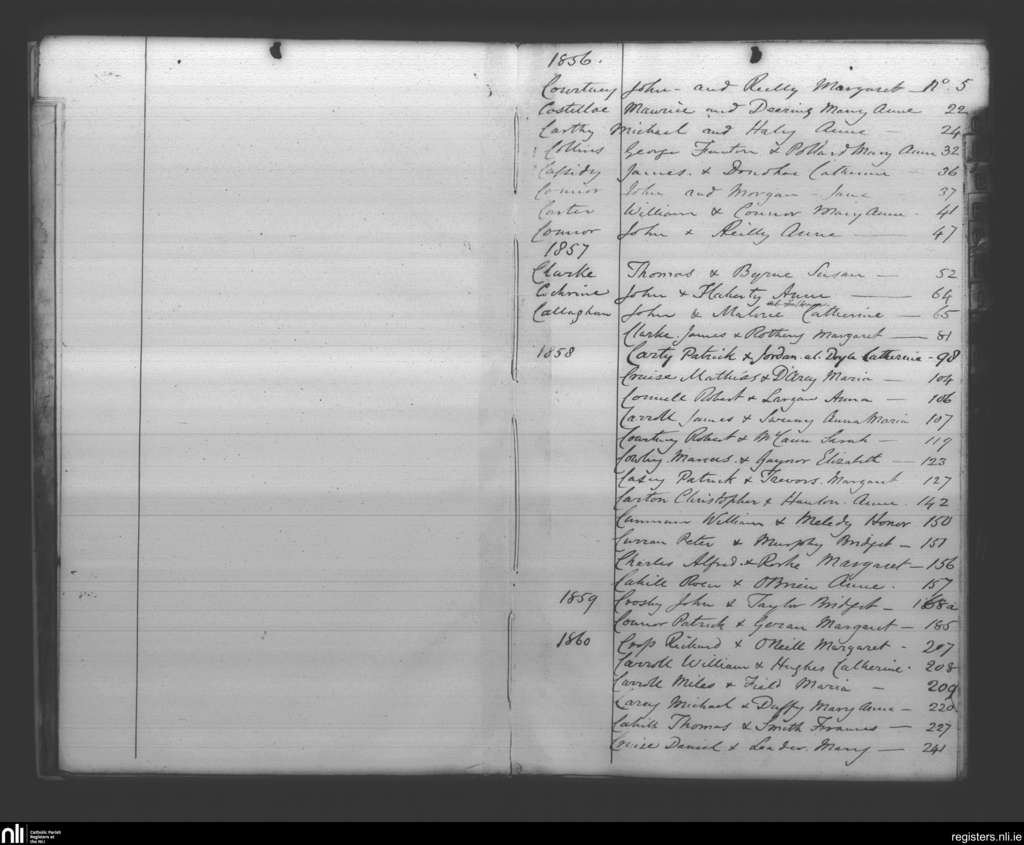 1856.
Courtney John - and Reilly Margaret - No. 5
Costilloe Maurice and Deering Mary Anne 22
Carthy Michael and Haly Anne - 24
Collins George Fenton & Pollard Mary Anne 32
Cassidy James. & Donohoe Catherine - 36
Connor John and Morgan - Jane 37
Carter William & Connor Mary Anne - 41
Connor John & Reilly Anne - 47
1857
Clarke Thomas & Byrne Susan - 52
Cochrine John & Flaherty Anne - 64
Callaghan John & Malone Catherine - 65
Clarke James & Margaret - 81
1858 Carty Patrick & Jordan al. Doyle Catherine - 98
Cruise Mathias & D'Arcy Maria - 104
Connell Robert & Anna - 106
Carroll James & Sweeny Anna Maria 107
Courtney Robert & McCann Sarah - 119
Marcus & Gaynor Elizabeth - 123
Casey Patrick & Trevors. Margaret 127
Carton Christopher & Hanlon Anne. 142
William & Meledy Honor 150
Curran Peter & Murphy Bridget - 151
Charles Alfred & Rorke Margaret - 156
Cahill Owen & O'Brien Anne. 157
1859 Crosby John & Taylor Bridget - 168a
Connor Patrick & Margaret - 185
1860 Richard & O'Neill Margaret - 207
Carroll William & Hughes Catherine. 208
Carroll Miles & Field Maria - 209
Carey Michael & Duffy Mary Anne - 220
Cahill Thomas & Smith Frances - 227
Daniel & Leader. Mary - 241
nli Catholic Parish Registers at the NLI
registers.nli.ie